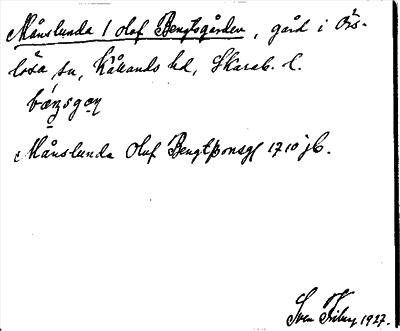 Månslunda 1 Olof Bengtsgården, gård i Örs-
lösa sn, Kållands hd, Skarab. l.
Månslunda Oluf Bengtßonsgl 1710 jb.
Sven Friberg 1927.